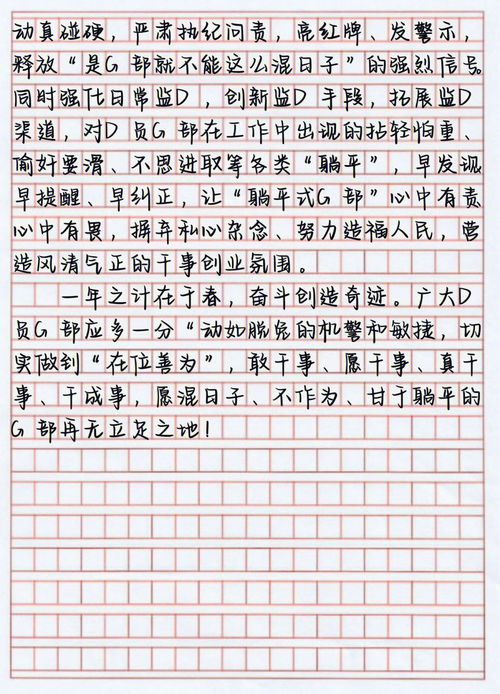 动真碰硬，严肃执纪问责，亮红牌、发警示，
释放“是G 部就不能这么混日子”的强烈信号。
同时强化日常监D，创新监D 手段，拓展监D
渠道，对D 员G 部在工作中出现的拈轻怕重、
偷奸耍滑、不思进取等各类“躺平”，早发现
早提醒、早纠正，让“躺平式G 部”心中有责
心中有畏，摒弃私心杂念、努力造福人民，营
造风清气正的干事创业氛围。
一年之计在于春，奋斗创造奇迹。广大D
员G 部应多一分“动如脱兔的机警和敏捷，切
实做到“在位善为”，敢干事、愿干事、真干
事、干成事，愿混日子、不作为、甘于躺平的
G 部再无立足之地！